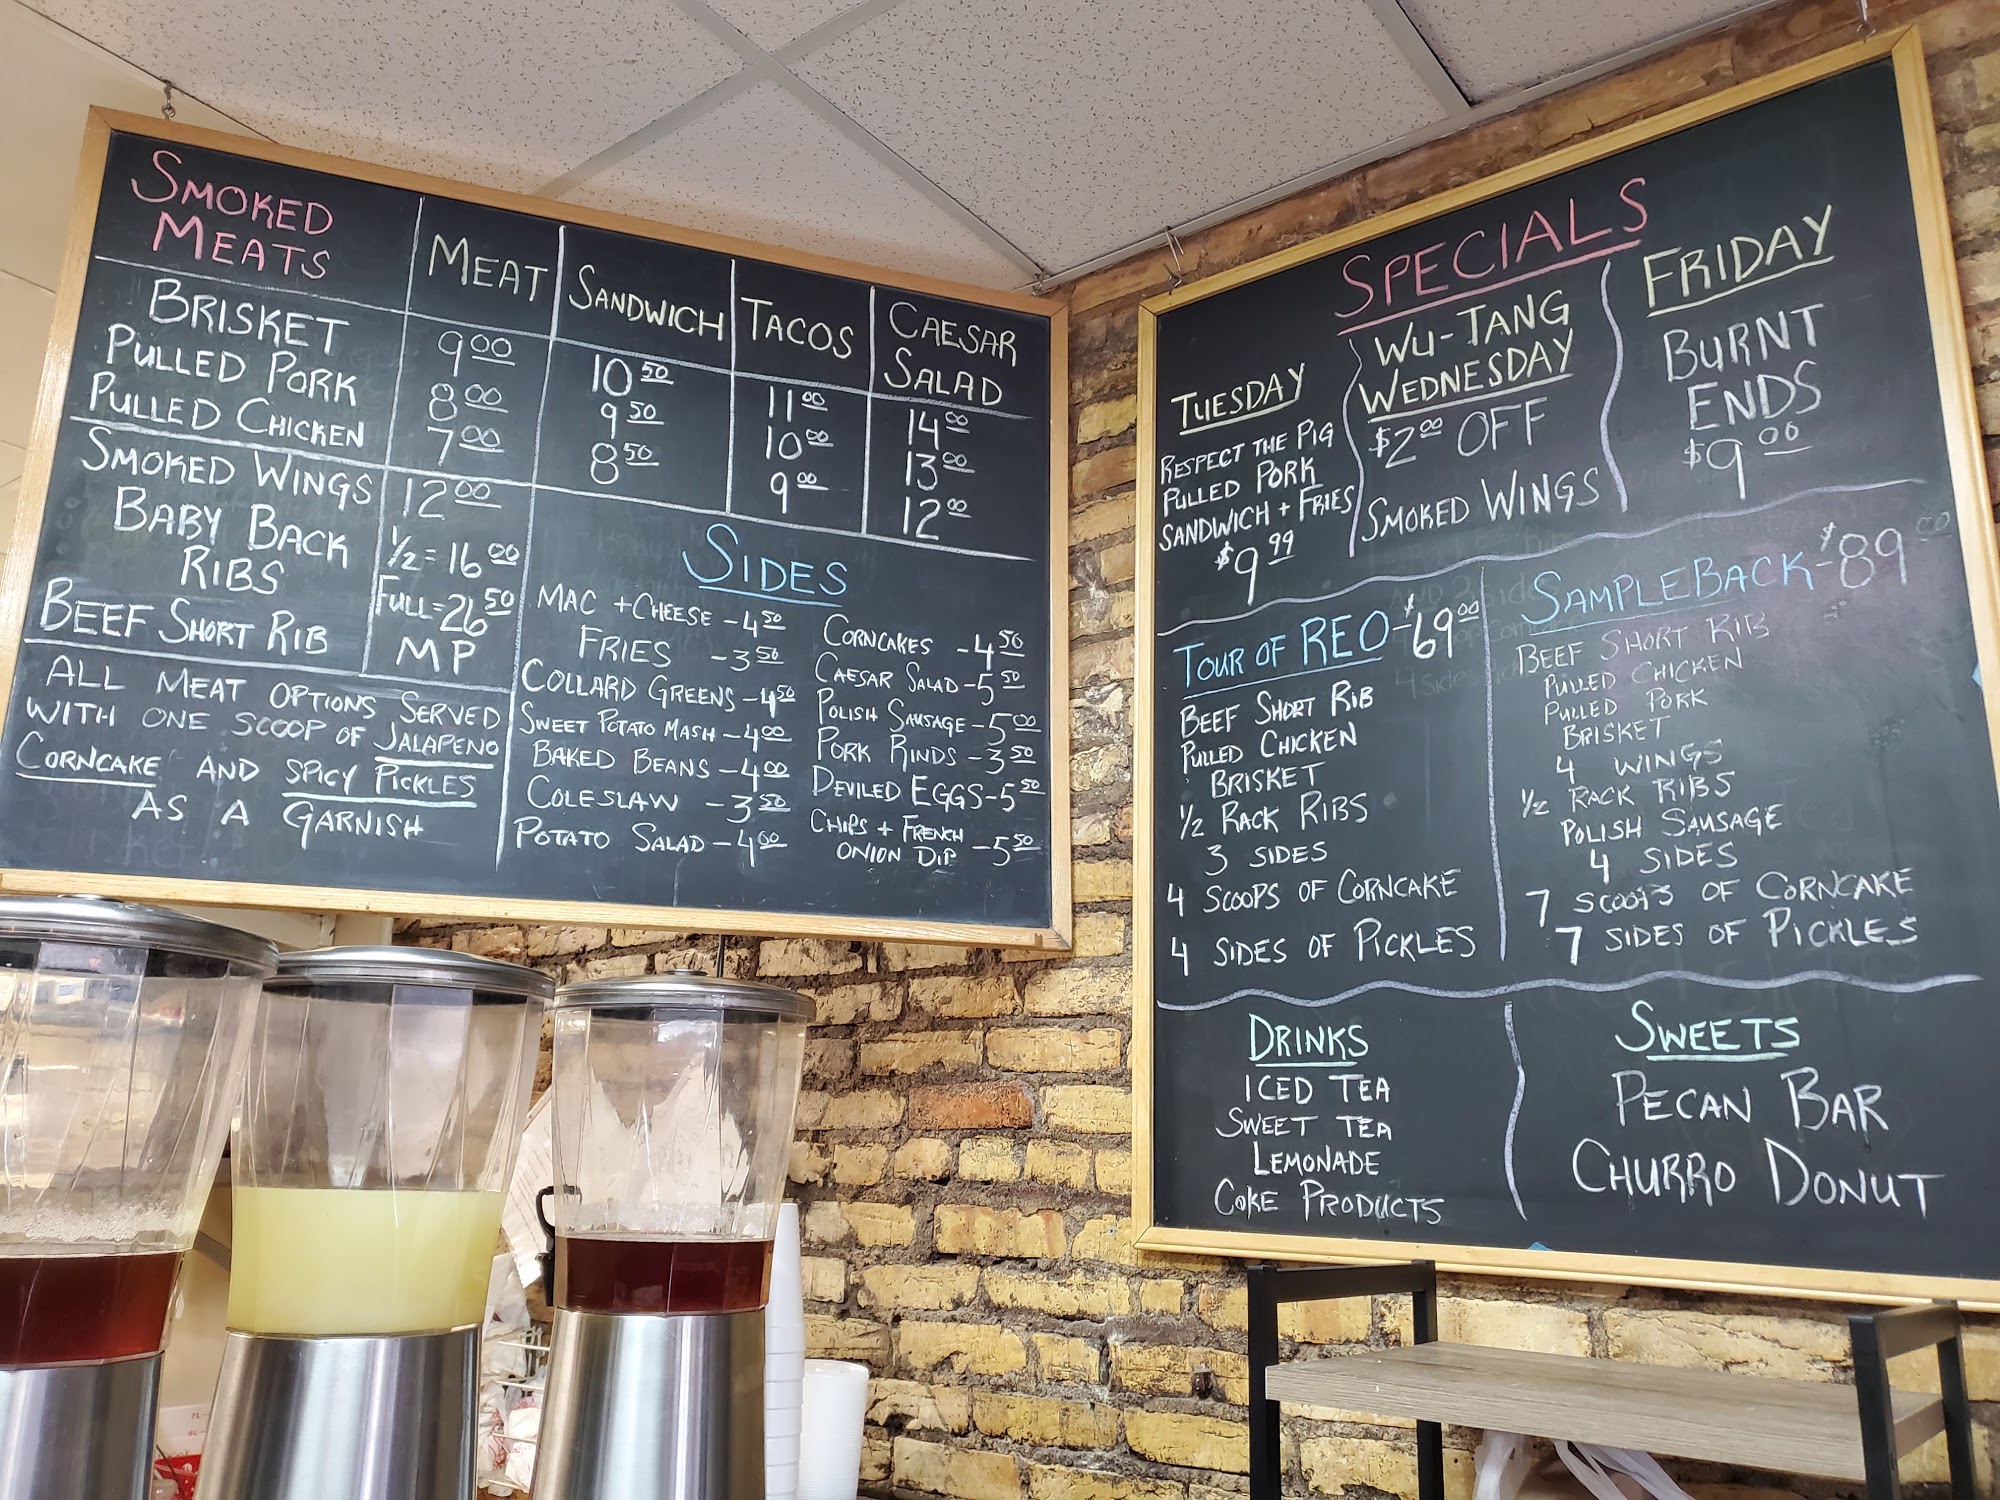 SMOKED
MEATS
MEAT
SANDWICH
TACOS
CAESAR
SALAD
BRISKET 9.00 10.50 11.00 14.00
PULLED PORK 8.00 9.50 10.00 13.00
PULLED CHICKEN 7.00 8.50 9.00 12.00
SMOKED WINGS 12.00
BABY BACK 1/2=16.00
RIBS FULL=26.50
BEEF SHORT RIB MP
ALL MEAT OPTIONS SERVED
WITH ONE SCOOP OF JALAPENO
CORNCAKE AND SPICY PICKLES
AS A GARNISH
SIDES
MAC + CHEESE - 4.50
FRIES - 3.50
COLLARD GREENS - 4.50
SWEET POTATO MASH - 4.00
BAKED BEANS - 4.00
COLESLAW - 3.50
POTATO SALAD - 4.00
CORNCAKES - 4.50
CAESAR SALAD - 5.50
POLISH SAUSAGE - 5.00
PORK RINDS - 3.50
DEVILED EGGS - 5.50
CHIPS + FRENCH
ONION DIP - 5.50
SPECIALS
TUESDAY
RESPECT THE PIG
PULLED PORK
SANDWICH + FRIES
$9.99
WU-TANG
WEDNESDAY
$2.00 OFF
SMOKED WINGS
FRIDAY
BURNT
ENDS
$9.00
TOUR OF REO - $69.00
BEEF SHORT RIB
PULLED CHICKEN
BRISKET
1/2 RACK RIBS
3 SIDES
4 SCOOPS OF CORNCAKE
4 SIDES OF PICKLES
SAMPLEBACK - $89.00
BEEF SHORT RIB
PULLED CHICKEN
PULLED PORK
BRISKET
4 WINGS
1/2 RACK RIBS
POLISH SAUSAGE
4 SIDES
7 SCOOPS OF CORNCAKE
7 SIDES OF PICKLES
DRINKS
ICED TEA
SWEET TEA
LEMONADE
COKE PRODUCTS
SWEETS
PECAN BAR
CHURRO DONUT